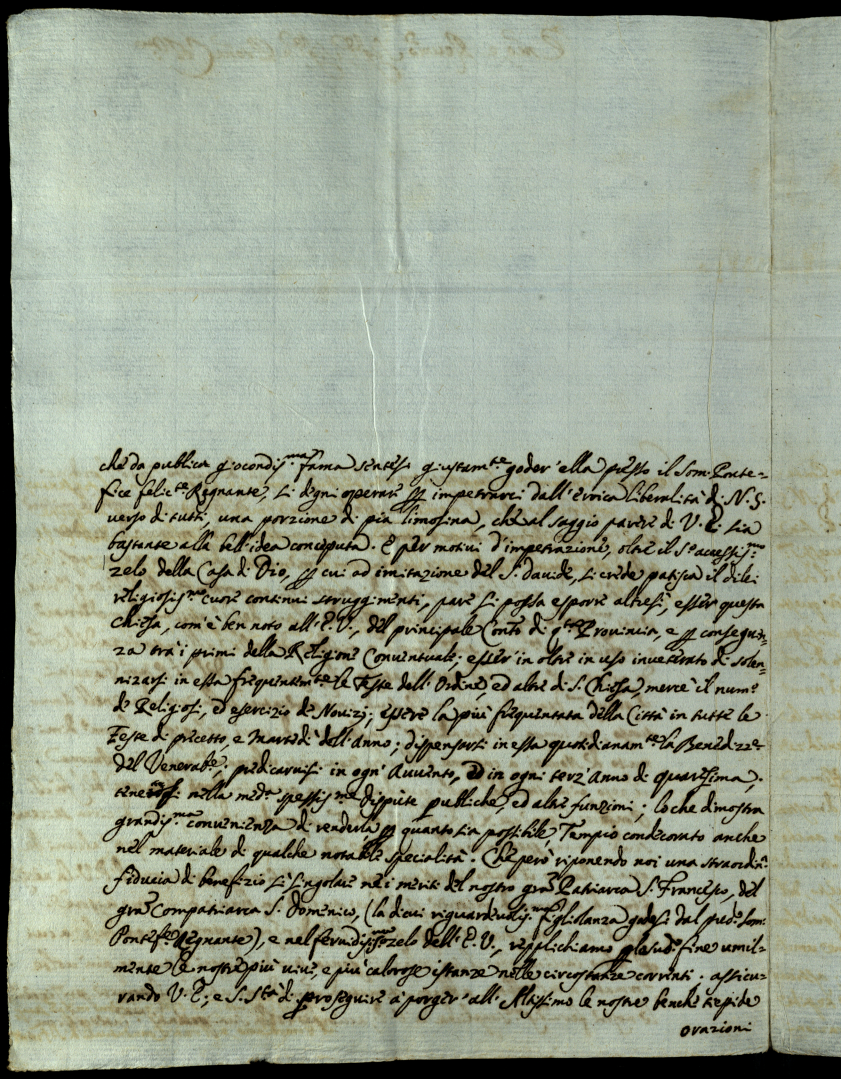 che da publica giocondis.ma fama s'intese giustam.te goder' ella presso il Som: Ponte-
fice felic.te Regnante, si degni operare per impetrarci dall'eroica liberalità di N. S.
verso di tutti, una porzione di pia limosina, che al saggio parere di V. E. sia
bastante alla bell'idea conceputa. E per motivi d'impetrazione, oltre il
zelo della Casa di Dio, per cui ad imitazione del S. Davide, si crede patisca il di lei
religiosis.mo cuore continui struggimenti, pare si possa esporre altresì, esser questa
Chiesa, com'è ben noto all'E. V., del principale Conv.to di q.ta Provincia, e per conseguen-
za trà i primi della Religione Conventuale; esser' in oltre in uso inveterato di solen-
nizarsi in essa frequentem.te le Feste dell'Ordine, ed altre di S. Chiesa, mercè il num.o
de Religiosi, ed esercizio de Novizj; essere la più frequentata della Città in tutte le
Feste di precetto, e Martedì dell'Anno; dispensarsi in essa quotidianam.te la Bened.zze
del Venerab.e, predicarvisi in ogni Avvento, ed in ogni terz'Anno di quaresima,
tenersi nella med.a spessis.me dispute publiche, ed altre funzioni; lo che dimostra
grandis.ma convenienza di renderla per quanto sia possibile Tempio condecorato anche
nel materiale di qualche notabile specialità. Che però riponendo noi una straordin.a
fiducia di benefizio sì singolare nei meriti del nostro gran Patriarca S. Francesco, del
gran Compatriarca S. Domenico, (la di cui riguardevolis.ma figliolanza godesi dal pred.o Som:
Pontef.e Regnante), e nel fervidis.mo zelo dell'E. V., replichiamo per le sud.o fine umil-
mente le nostre più vive, e più calorose istanze nelle circostanze correnti. assicu-
rando V. E., e S. S.tà di proseguire a porger' all'Altissimo le nostre benche tiepide
orazioni